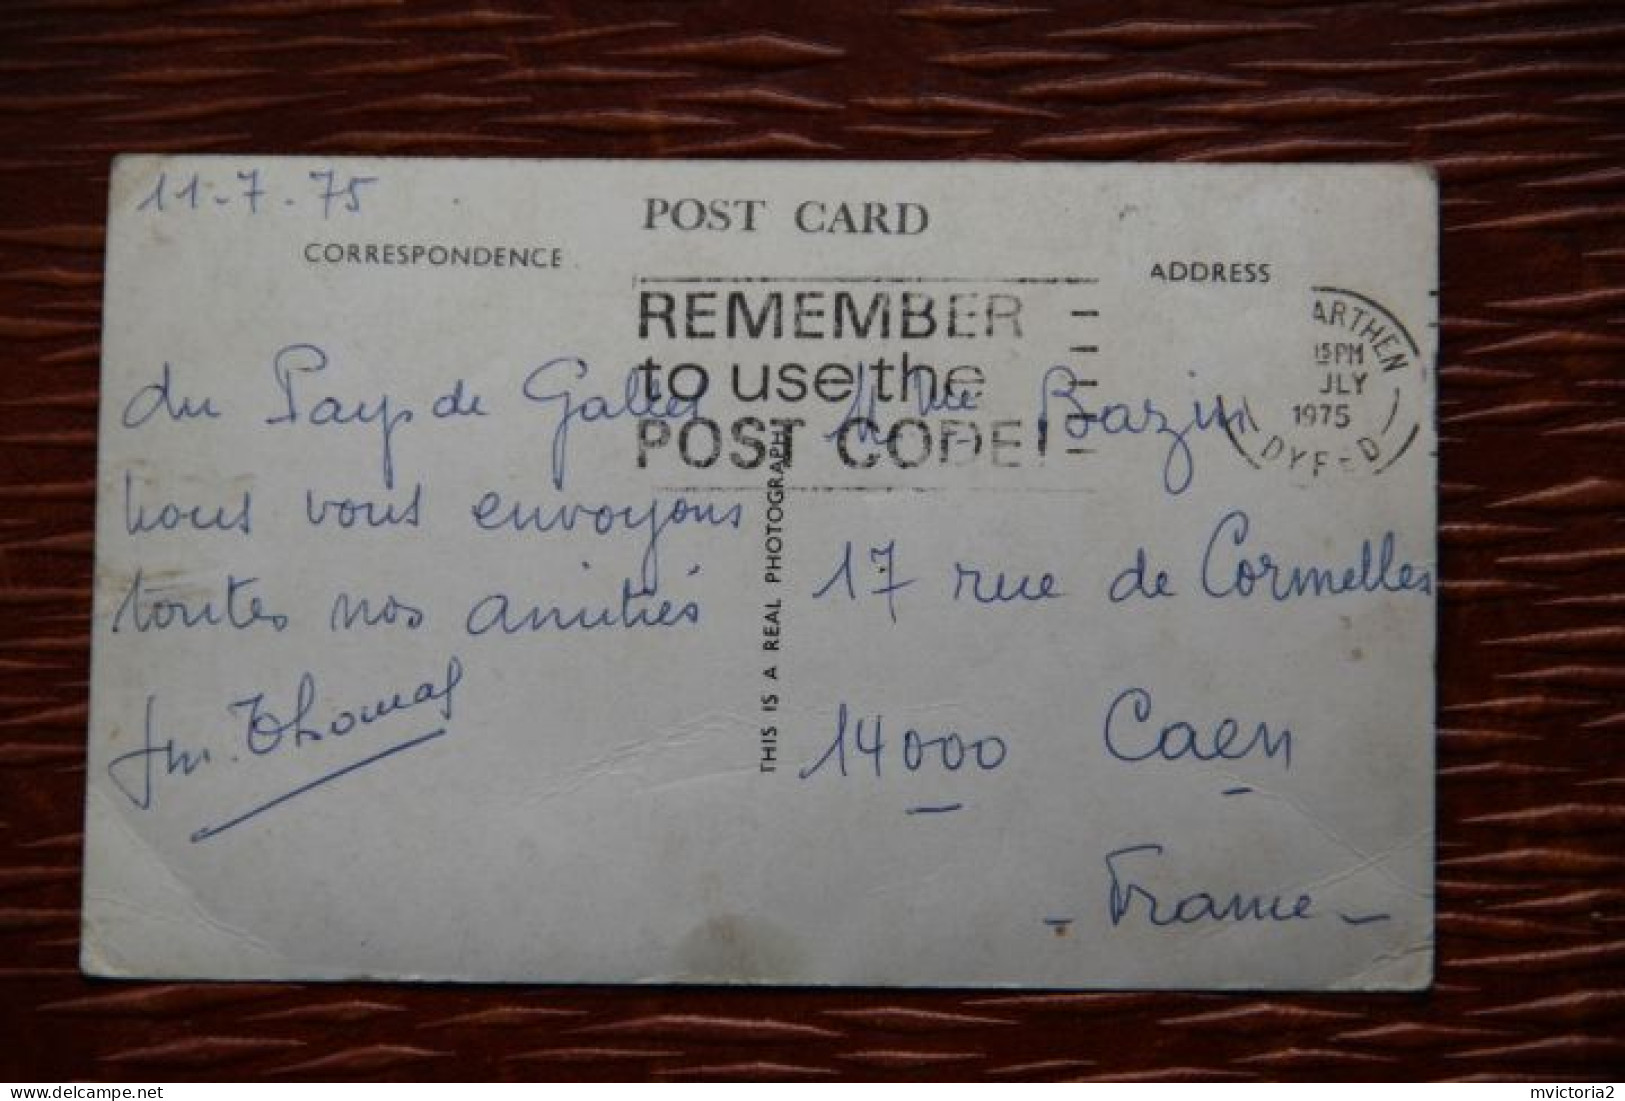 11-7-75
POST CARD
CORRESPONDENCE
ADDRESS
REMEMBER
to use the
POST CODE!
ARTHEN
15PM
JLY
1975
DYFED
du Pays de Galles
nous vous envoyons
toutes nos amitiés
Thomas
THIS IS A REAL PHOTOGRAPH
Bazin
17 rue de Cormelles
14000 Caen
- France -
mvictoria2